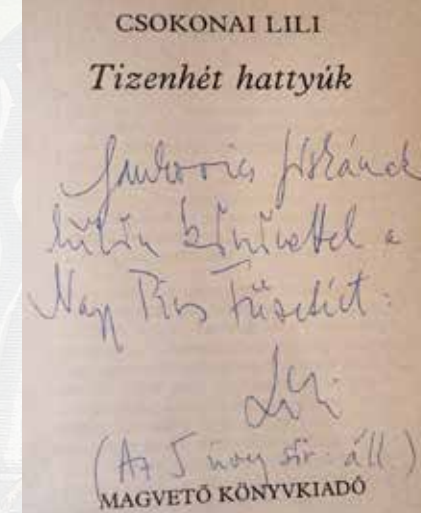 CSOKONAI LILI
Tizenhét hattyúk
Jankovics Jóskának
külön köszönettel a
Nagy Piros Füzetért:
Lili
(Az 5 üveg sör: áll)
MAGVETŐ KÖNYVKIADÓ